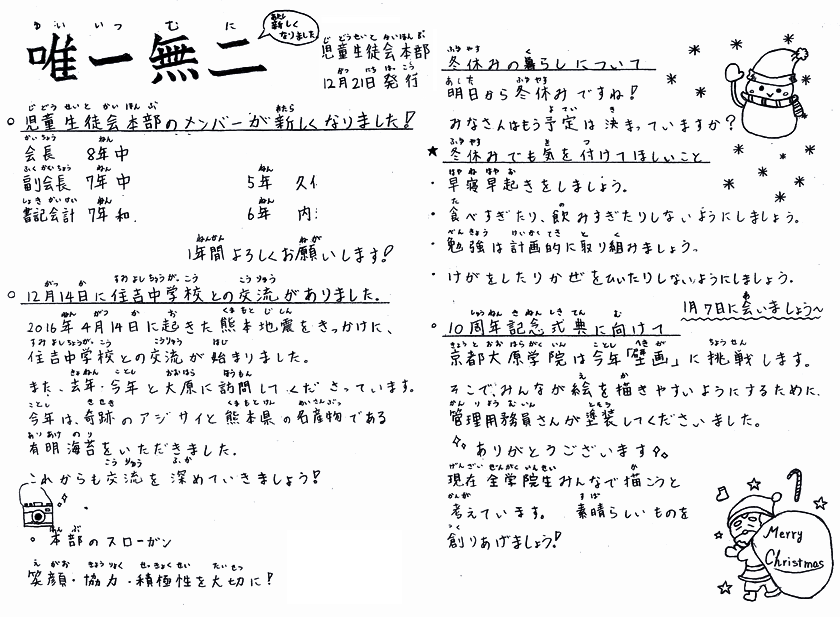 唯一無二
新しくなりました
児童生徒会本部
12月21日発行
児童生徒会本部のメンバーが新しくなりました!
会長 8年中
副会長 7年中 5年 久
書記会計 7年和 6年 内
1年間よろしくお願いします!
12月14日に住吉中学校との交流がありました。
2016年4月14日に起きた熊本地震をきっかけに、
住吉中学校との交流が始まりました。
また、去年・今年と大原に訪問してくださっています。
今年は、奇跡のアジサイと熊本県の名産物である
有明海苔をいただきました。
これからも交流を深めていきましょう!
本部のスローガン
笑顔・協力・積極性を大切に!
冬休みの暮らしについて
明日から冬休みですね!
みなさんはもう予定は決まっていますか?
★冬休みでも気を付けてほしいこと
・早寝早起きをしましょう。
・食べすぎたり、飲みすぎたりしないようにしましょう。
・勉強は計画的に取り組みましょう。
・けがをしたりかぜをひいたりしないようにしましょう。
1月7日に会いましょう~
10周年記念式典に向けて
京都大原学院は今年「壁画」に挑戦します。
そこで、みんなが絵を描きやすいようにするために、
管理用務員さんが塗装してくださいました。
ありがとうございます
現在全学院生みんなで描こうと
考えています。 素晴らしいものを
創りあげましょう!
Merry
Christmas